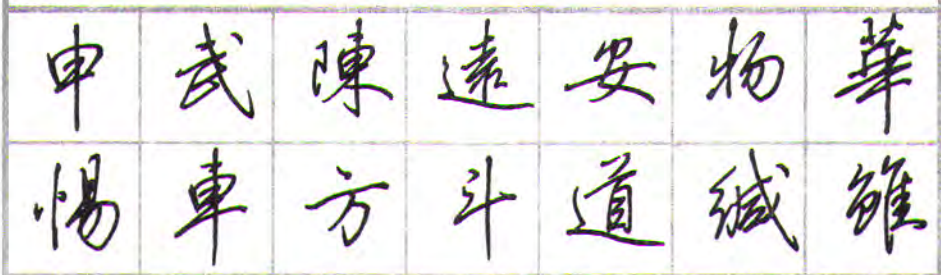 申武陳遠安物華
惕車方斗道緘雖